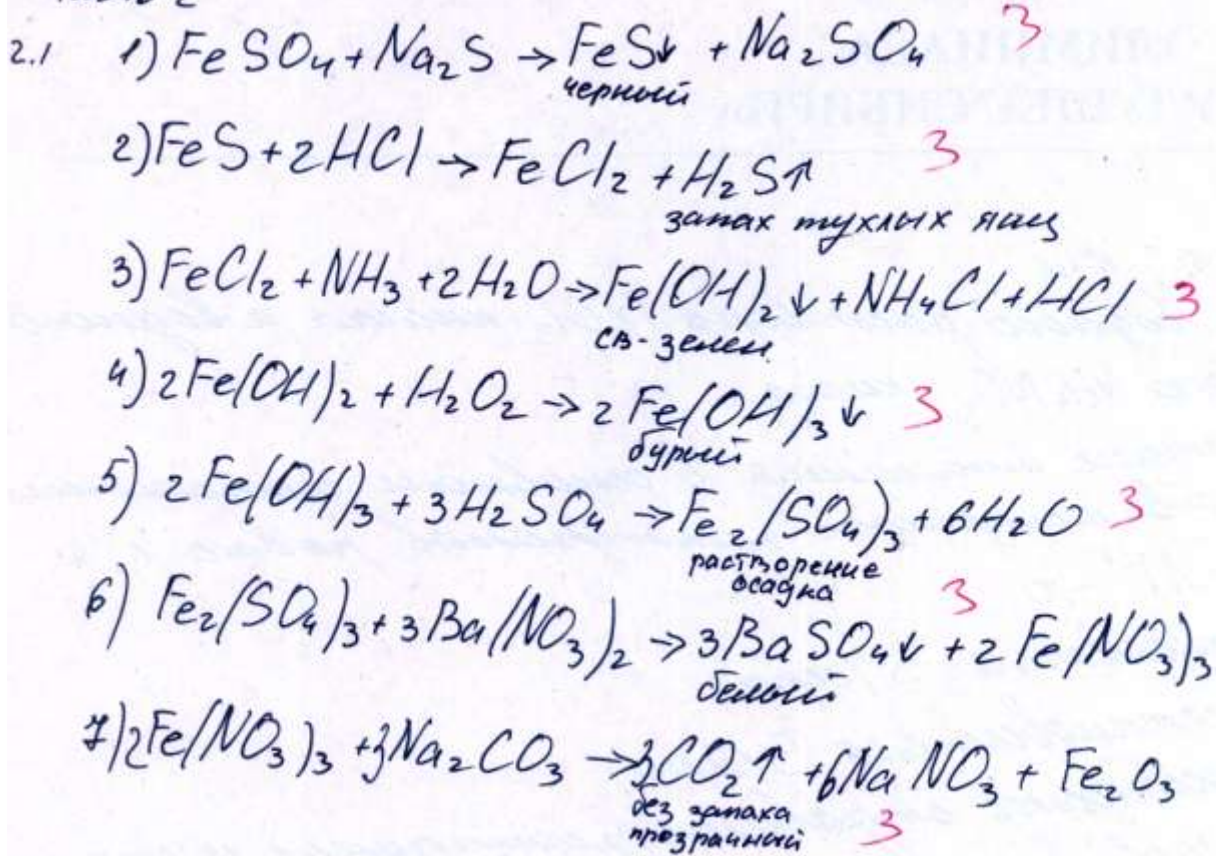 2.1 1) FeSO₄ + Na₂S → FeS↓ + Na₂SO₄ 3
черный
2) FeS + 2HCl → FeCl₂ + H₂S↑ 3
запах тухлых яиц
3) FeCl₂ + NH₃ + 2H₂O → Fe(OH)₂↓ + NH₄Cl + HCl 3
св-зелен.
4) 2Fe(OH)₂ + H₂O₂ → 2Fe(OH)₃↓ 3
бурый
5) 2Fe(OH)₃ + 3H₂SO₄ → Fe₂(SO₄)₃ + 6H₂O 3
растворение
осадка
6) Fe₂(SO₄)₃ + 3Ba(NO₃)₂ → 3BaSO₄↓ + 2Fe(NO₃)₃ 3
белый
7) 2Fe(NO₃)₃ + 3Na₂CO₃ → 3CO₂↑ + 6NaNO₃ + Fe₂O₃
без запаха
прозрачный 3